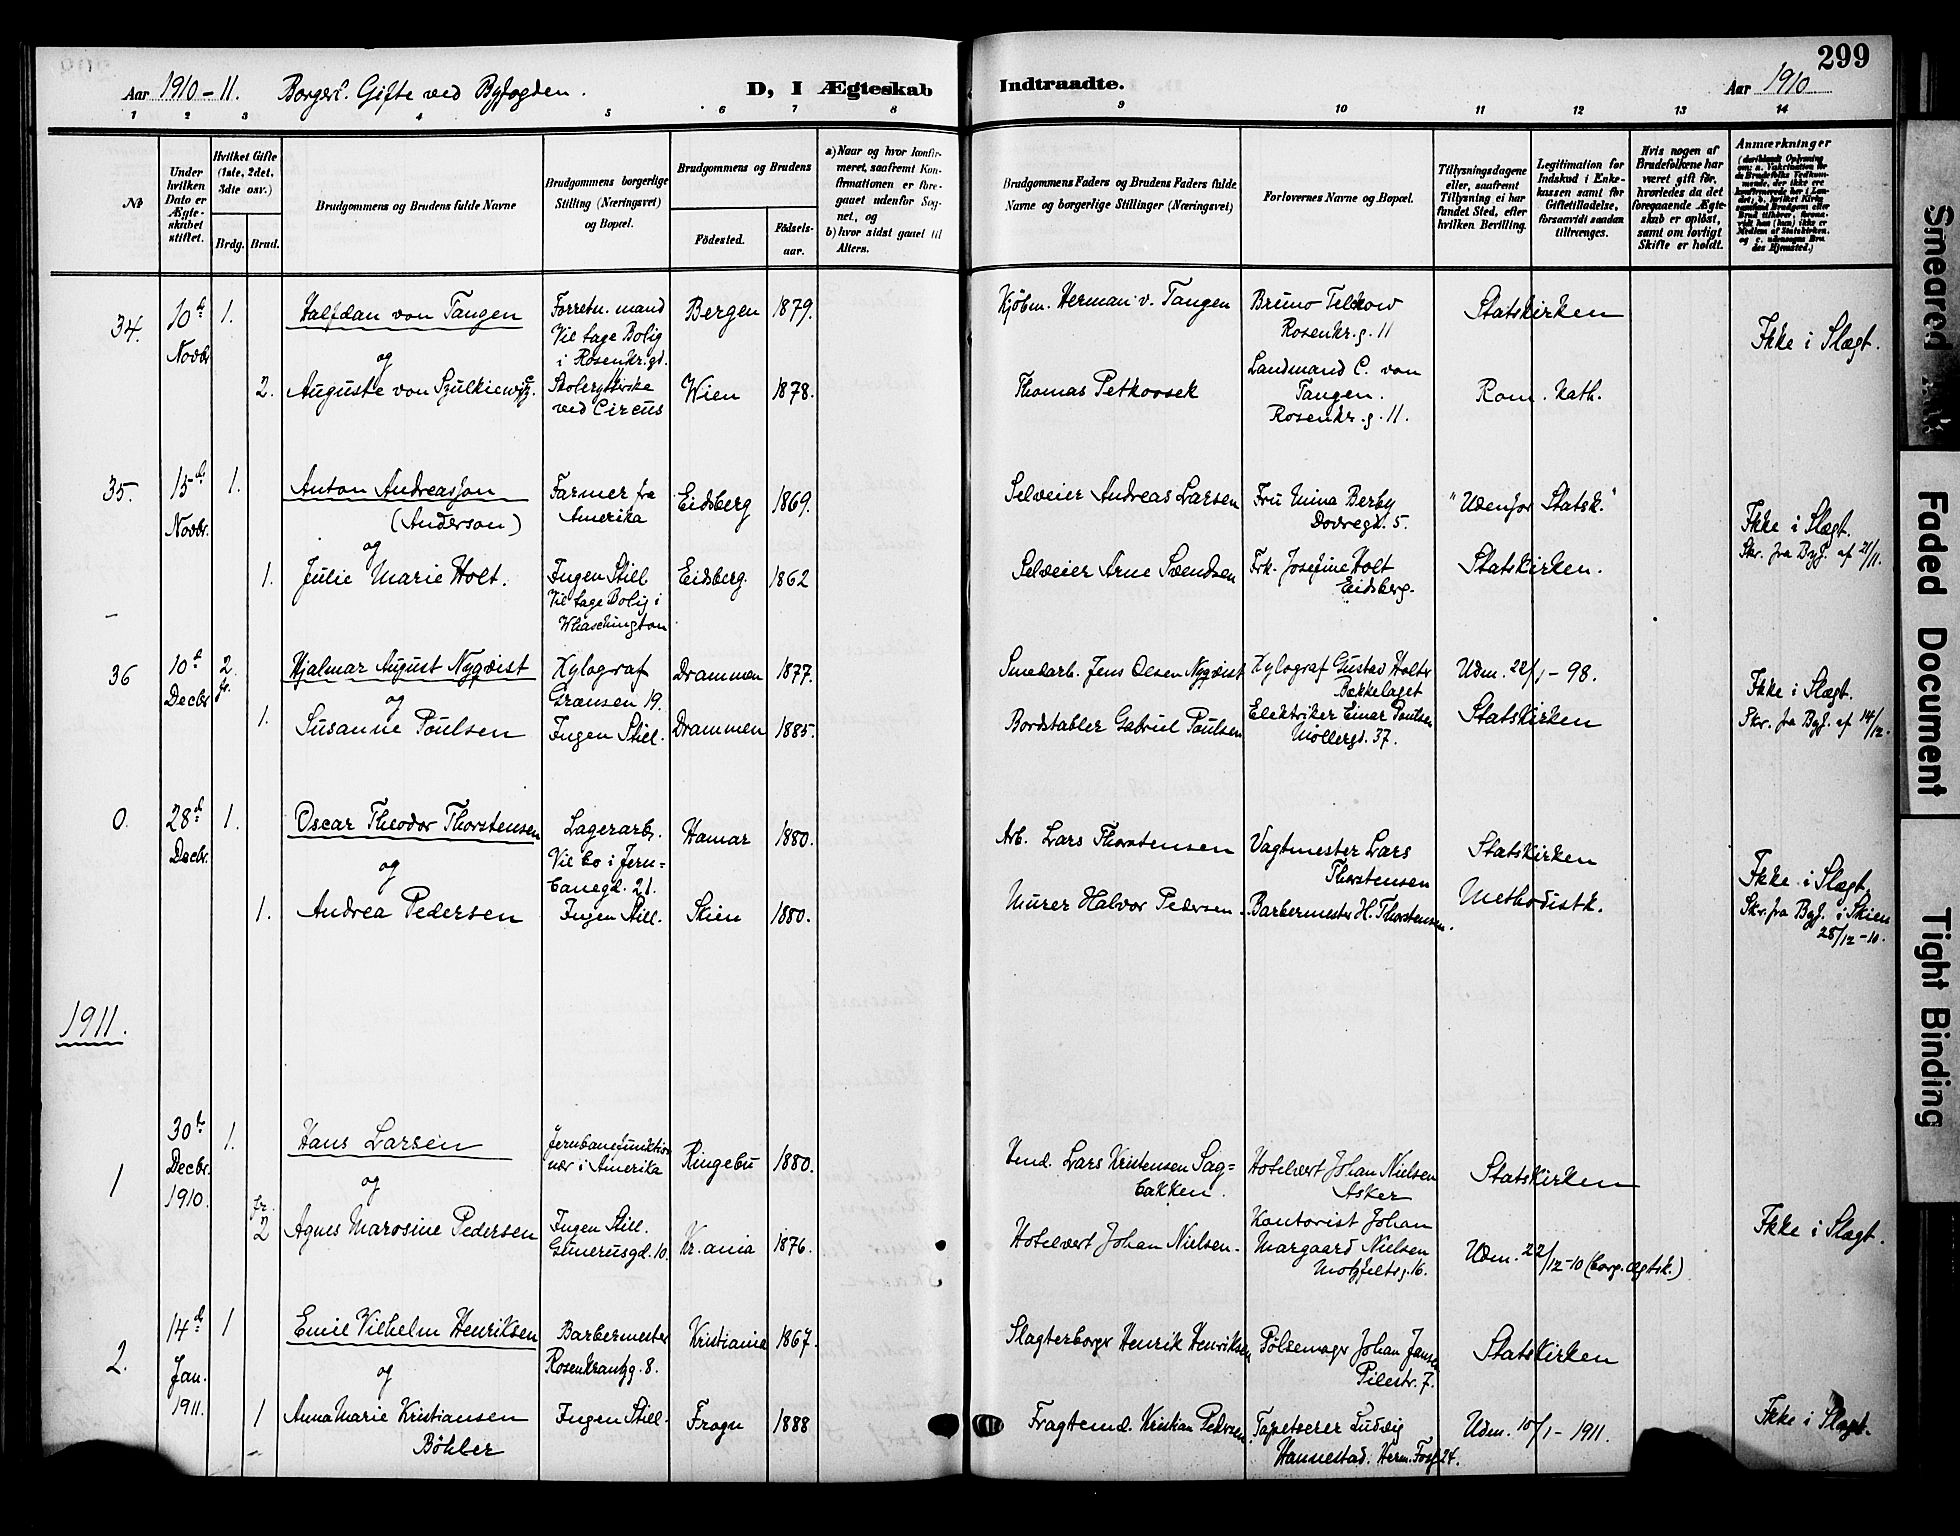 299
Aar 1910-11. Borgerl. Gifte ved Byfogden. D, I Ægteskab Indtraadte. Aar 1910
1 2 3 4 5 6 7 8 9 10 11 12 13 14
No
Under hvilken Dato er Ægteskabet stiftet.
Hvilket Gifte (1ste, 2det, 3dte osv.)
Brdg. Brud.
Brudgommens og Brudens fulde Navne
Brudgommens borgerlige Stilling (Næringsvei) og Bopæl.
Brudgommens og Brudens
Fødested. Fødselsaar.
a) Naar og hvor konfirmeret, saafremt Konfirmationen er foregaaet udenfor Sognet, og
b) hvor sidst gaaet til Alters.
Brudgommens Faders og Brudens Faders fulde Navne og borgerlige Stillinger (Næringsvei)
Forlovernes Navne og Bopæl.
Tillysningsdagene eller, saafremt Tillysning ei har fundet Sted, efter hvilken Bevilling.
Legitimation for Indskud i Enkekassen samt for Giftetilladelse, forsaavidt saadan tiltrænges.
Hvis nogen af Brudefolkene har været gift før, hvorledes da det foregaaende Ægteskab er opløst, samt om lovligt Skifte er holdt.
Anmærkninger
34. 10de Novbr 1. Halfdan von Tangen Forretn. mand Bergen 1879. Kjøbm. Herman v. Tangen Bruno Telkow Statskirken
Vil tage Bolig i Rosenkr.gd. Rosenkr.g. 11 Ikke i Slægt.
og
2. Auguste von Szulkiewicz. Skolerytterske ved Circus Wien 1878. Thomas Petkovsek Landmand C. von Tangen. Rosenkr.g. 11. Rom. kath.
35. 15de Novbr. 1. Anton Andreassen (Anderson) Farmer fra Amerika Eidsberg 1869. Selveier Andreas Larsen Fru Mina Berby Dovregt. 5. "Udenfor Statsk." Ikke i Slægt.
og Skr. fra Byf. af 21/11.
1. Julie Marie Holt. Ingen Still Eidsberg. 1862 Selveier Arne Svendsen Frk. Josefine Holt Eidsberg. Statskirken.
Vil tage Bolig i Whaschington
36 10de Decbr 2 fr. Hjalmar August Nyqvist Xylograf Grænsen 19. Drammen 1877. Smedarb. Jens Olsen Nyqvist Xylograf Gustav Holter Bækkelaget Udm. 22/1-98. Ikke i Slægt.
og Skr. fra Byf. af 14/12.
1. Susanne Poulsen Ingen Still. Drammen 1885. Bordstabler Gabriel Poulsen Elektriker Einar Poulsen Møllergd. 37. Statskirken
0. 28de Decbr. 1. Oscar Theodor Thorstensen Lagerarb. Hamar 1880. Arb. Lars Thorstensen Vagtmester Lars Thorstensen Statskirken
og Vil bo i Jernbanegd. 21. Ikke i Slægt.
1. Andrea Pedersen Ingen Still. Skien 1880. Murer Halvor Pedersen. Barbermester H. Thorstensen. Methodistk. Skr. fra Byf. i Skien 28/12-10.
1911.
1 30te Decbr. 1910. 1. Hans Larsen Jernbanefunktionær i Amerika Ringebu 1880. Lars Kristensen Sagbakken. Hotelvert Johan Nielsen Asker Statskirken
og
fr. 2 Agnes Marosine Pedersen Ingen Still. Gunerusgd. 10. Kr.ania 1876. Hotelvert Johan Nielsen. Kontorist Johan Margaard Nielsen Motzfeltsg. 16. Udm. 22/12-10 (borg. ægtsk.) Ikke i Slægt.
2. 14de Jan. 1911. 1 Emil Vilhelm Henriksen Barbermester Rosenkrantzg. 8. Kristiania 1867. Slagterborger Henrik Henriksen Pølsemager Johan Jansen Pilestr. 7. Statskirken
og
1 Anna Marie Kristiansen Bøhler Ingen Still. Frogn 1888 Fragtemd. Kristian Pedersen. Tapetserer Ludvig Hannestad. Herm. Fossg. 24. Udm. 10/1-1911. Ikke i Slægt.
Smeared Ink
Faded Document
Tight Binding